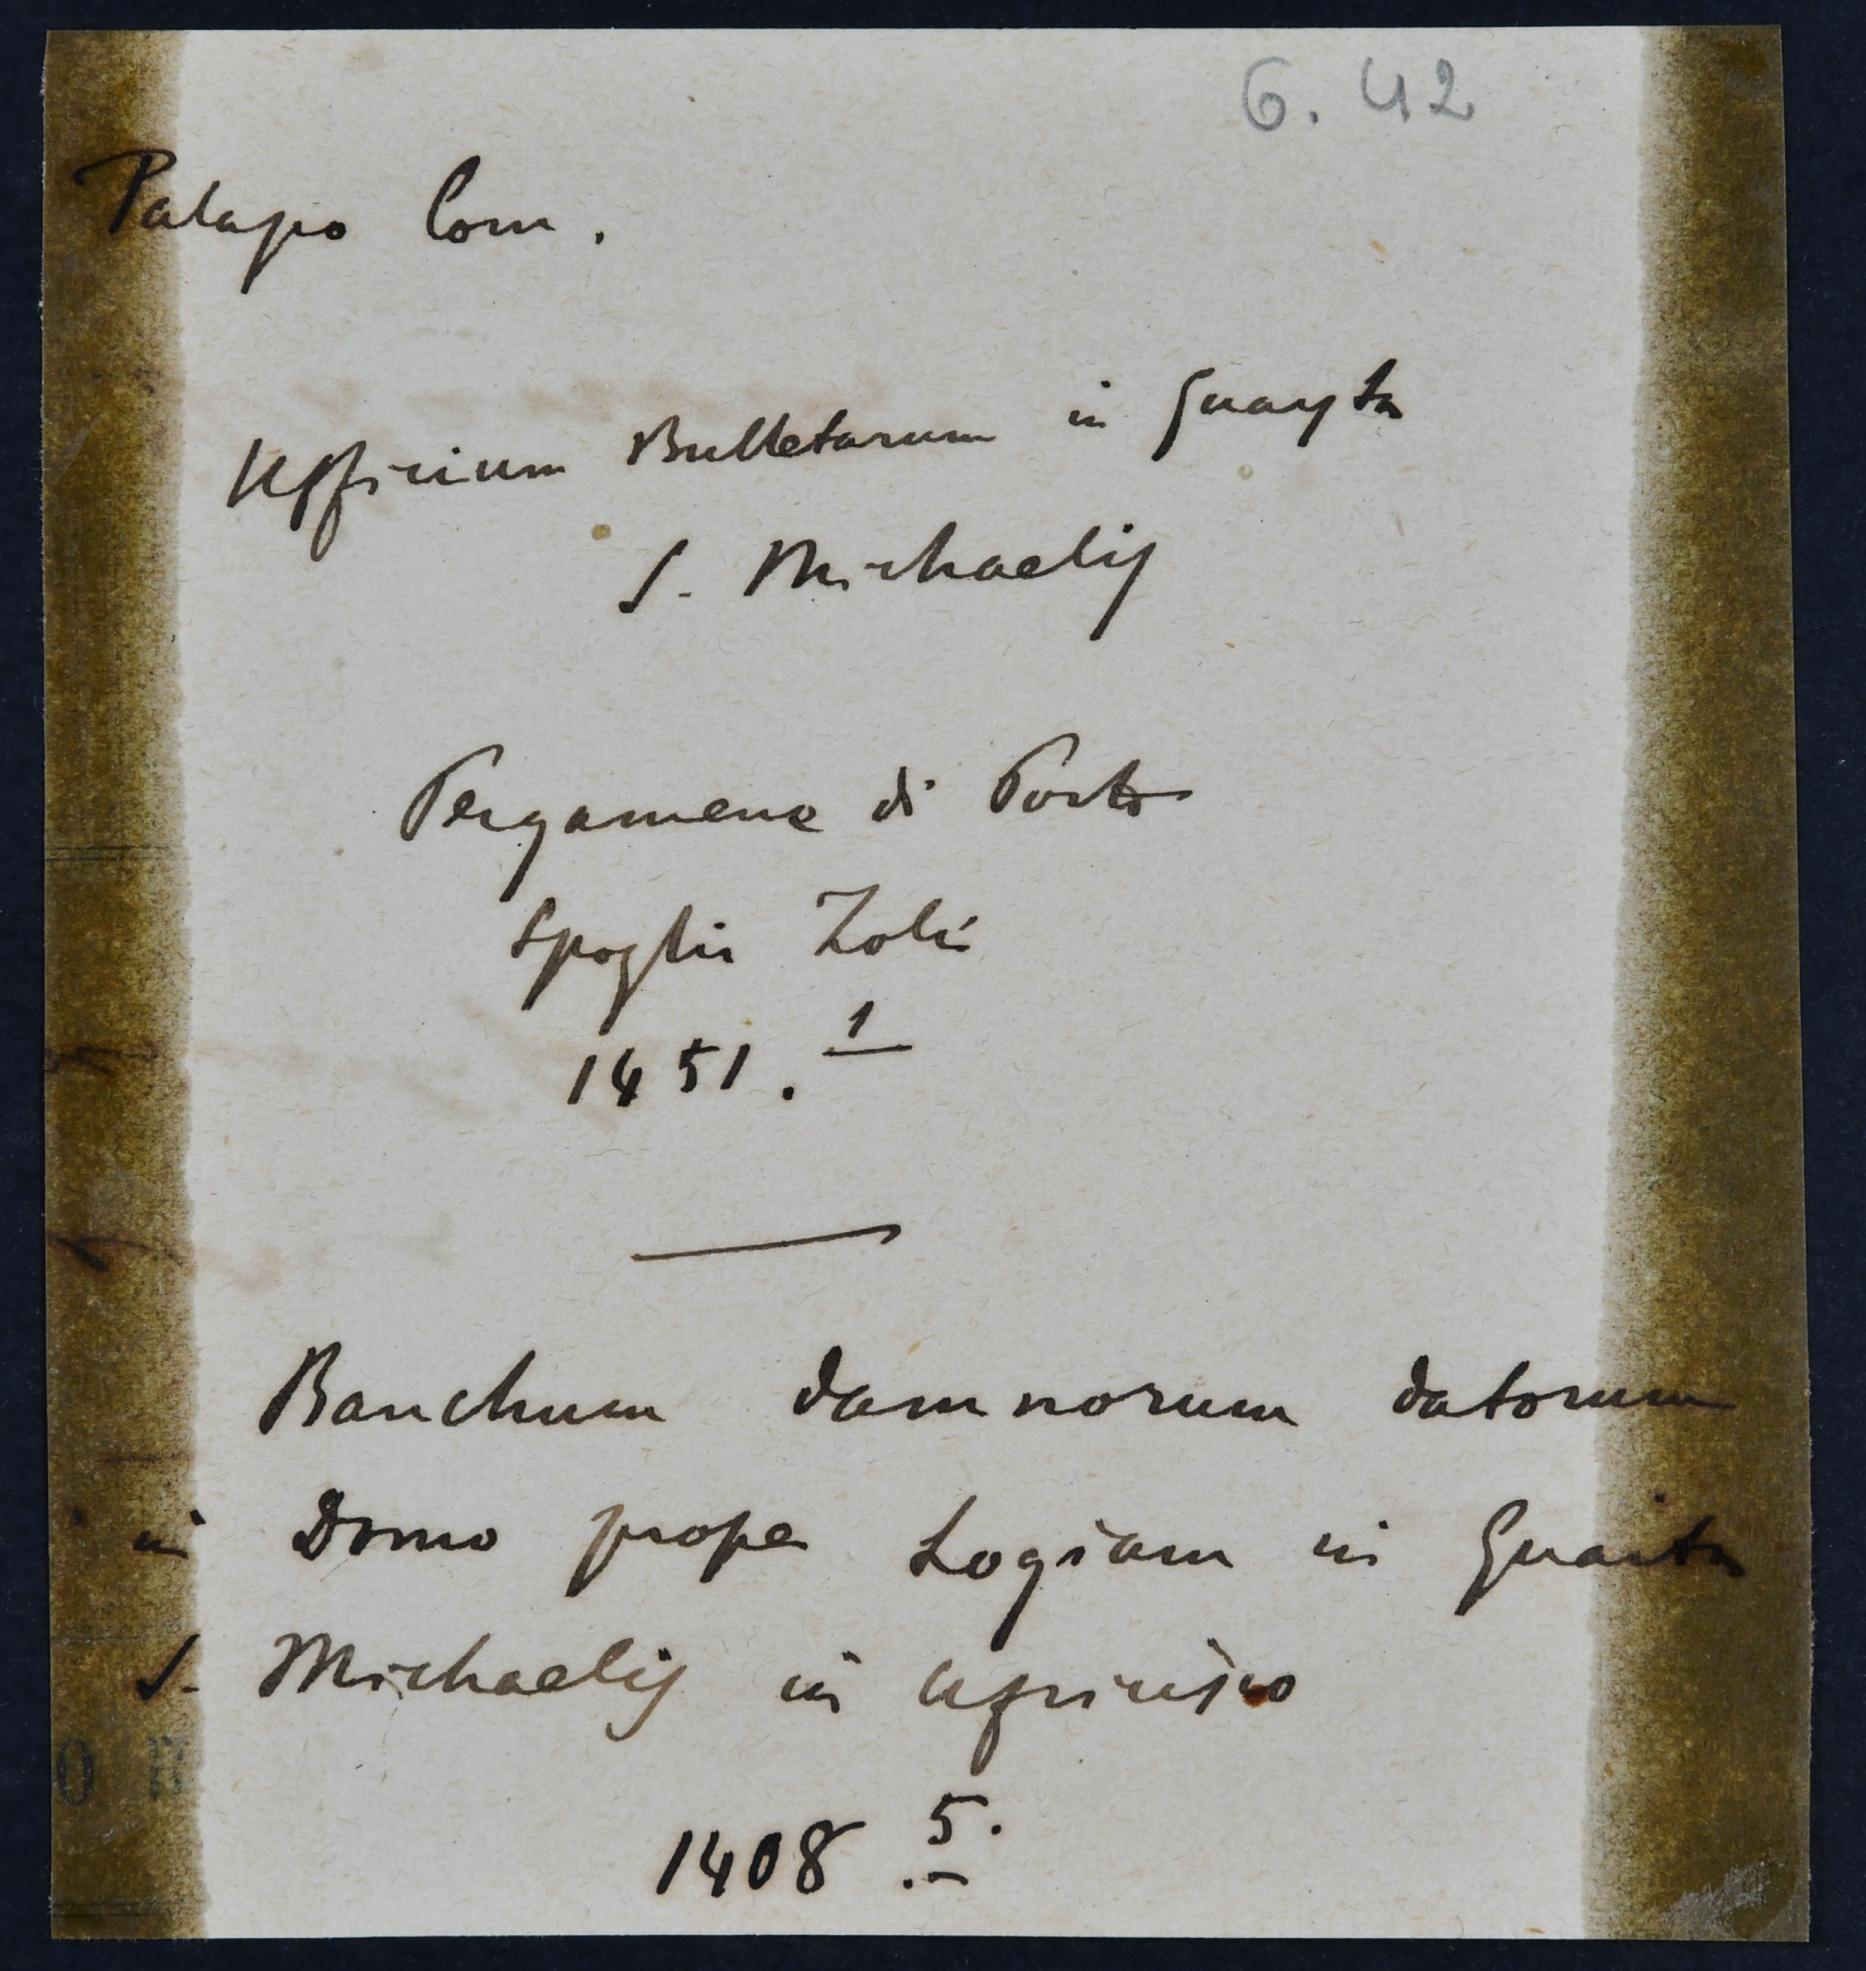 6. 42
Palazzo Com.
Ufficium Bulletarum in Guayta
S. Michaelis
Pergamene di Porto
Spoglio Zoli
1451. 1
Banchum damnorum datorum
in Domo prope Logiam in Guaita
S. Michaelis in
1408. 5.